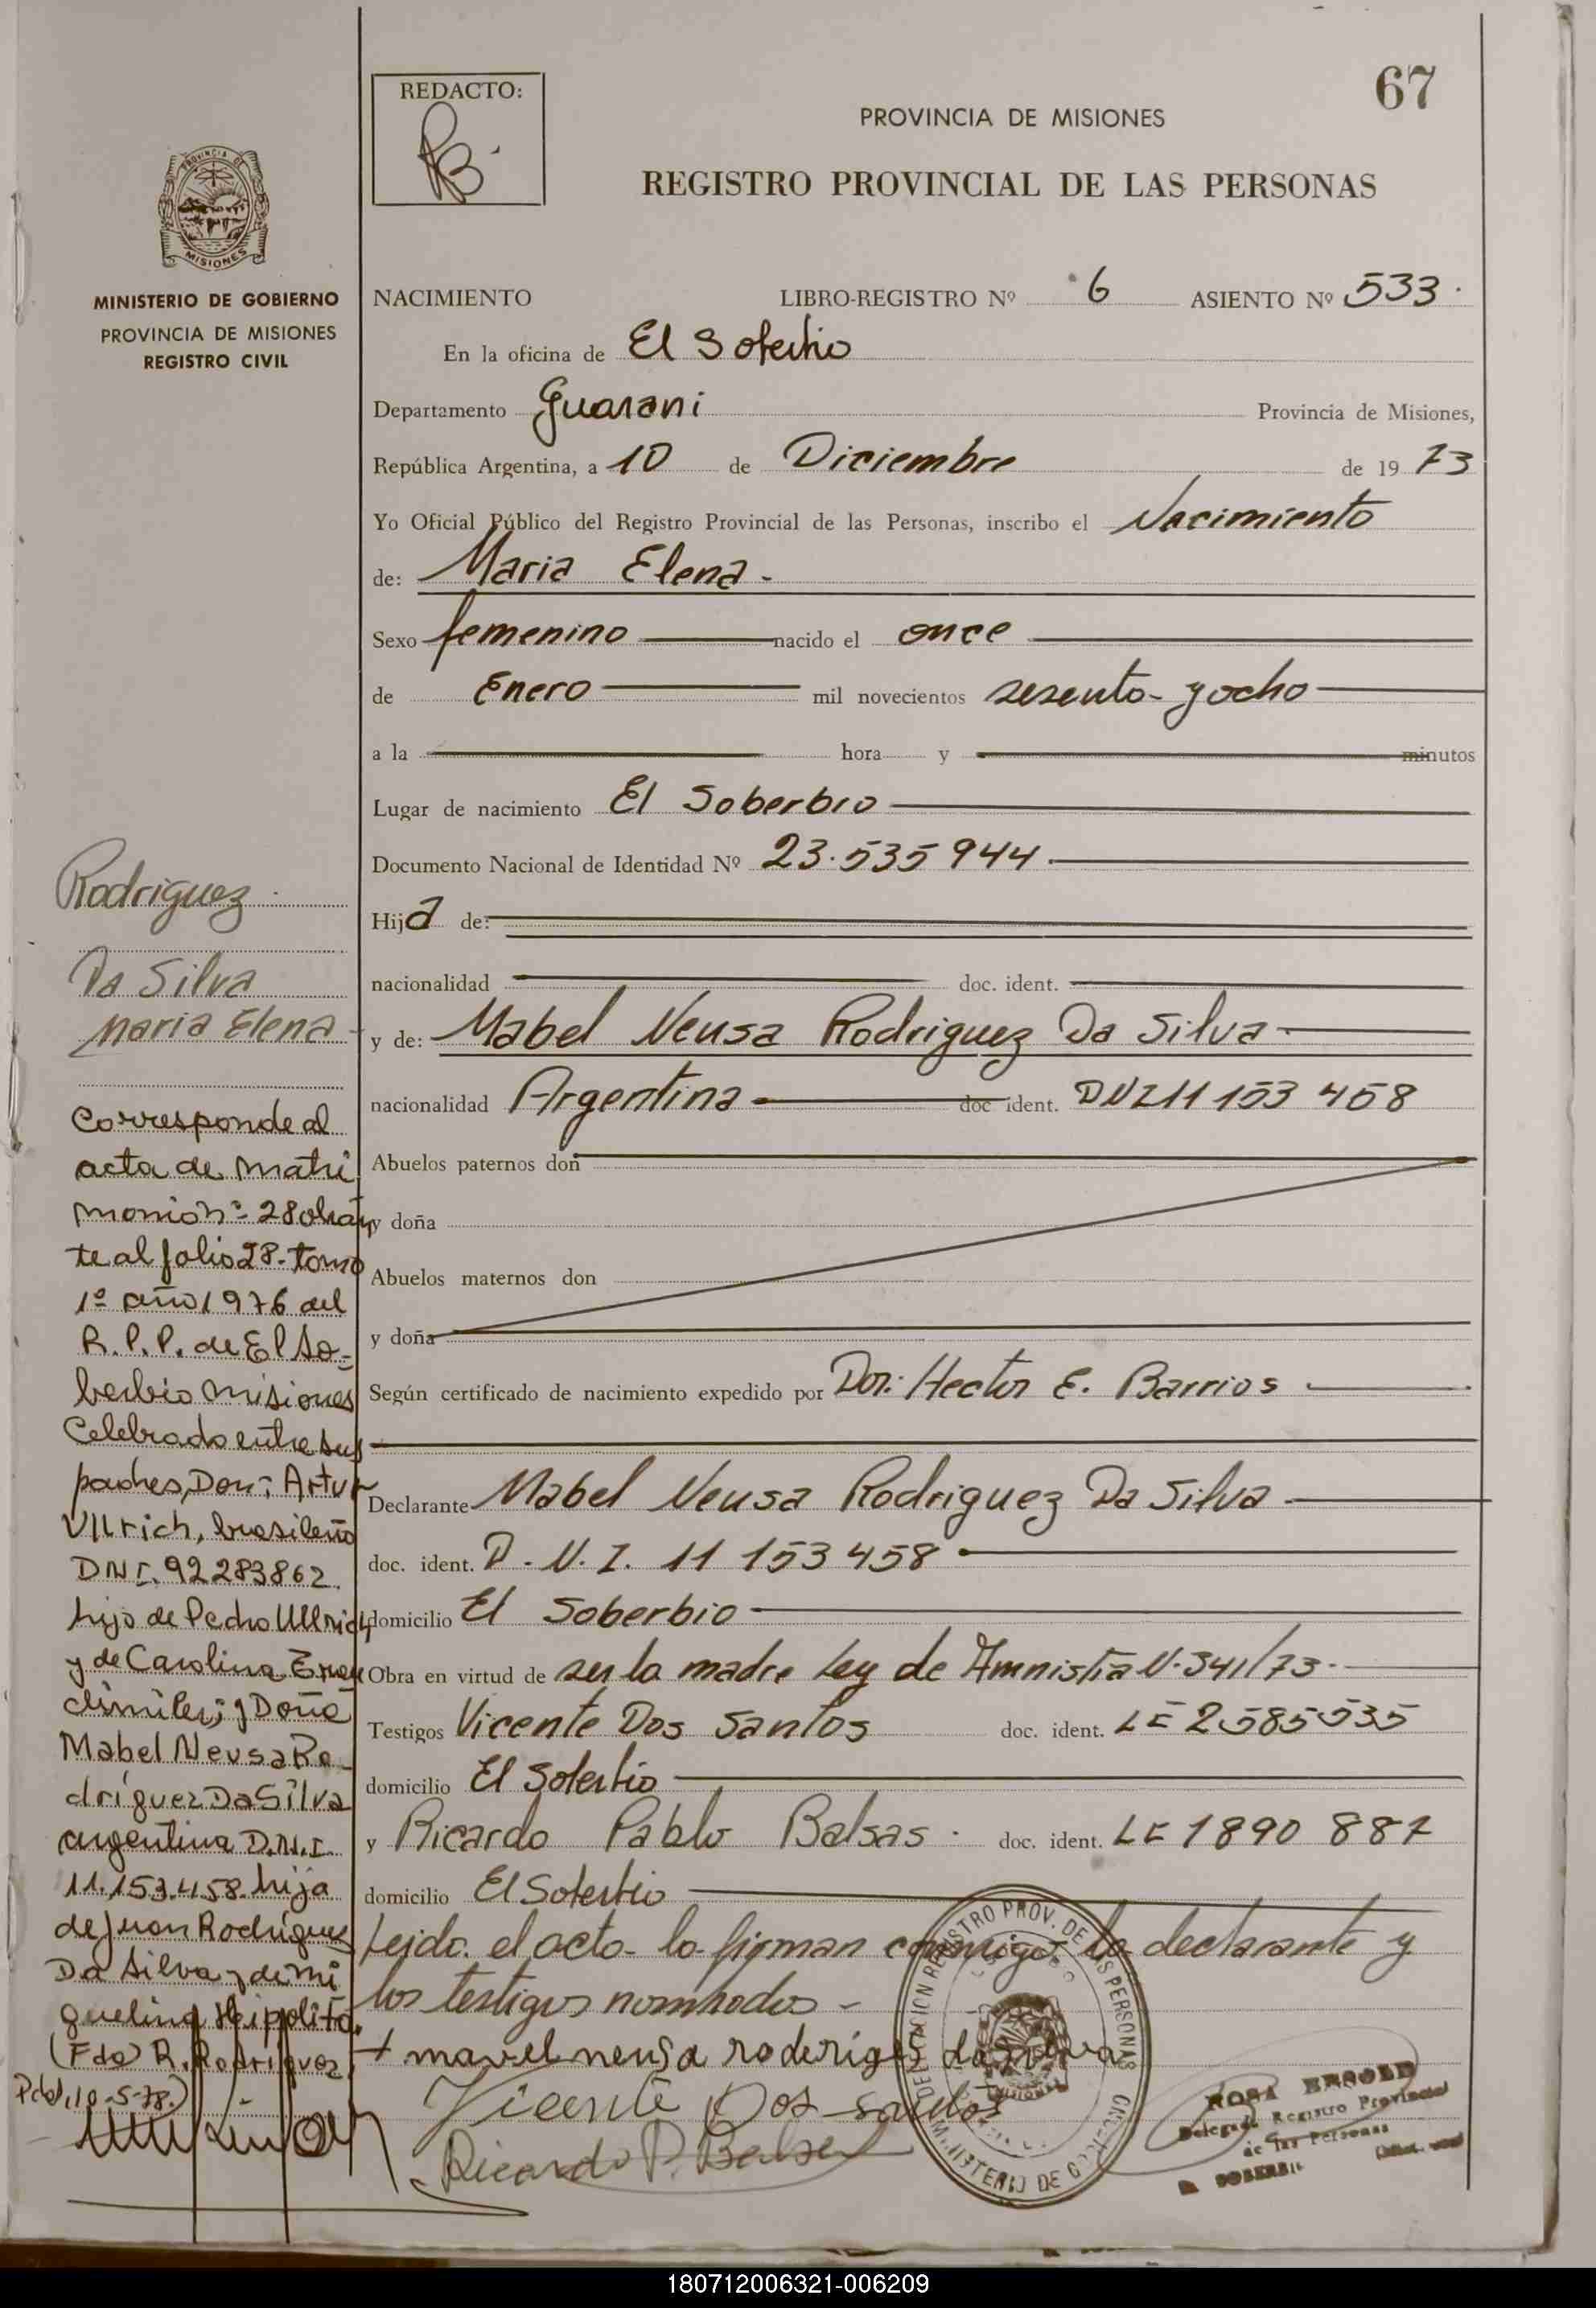 67
REDACTO:
PROVINCIA DE MISIONES
REGISTRO PROVINCIAL DE LAS PERSONAS
PROVINCIA DE
MISIONES
MINISTERIO DE GOBIERNO
PROVINCIA DE MISIONES
REGISTRO CIVIL
NACIMIENTO LIBRO-REGISTRO Nº 6 ASIENTO Nº 533.
En la oficina de El Soberbio
Departamento Guarani Provincia de Misiones,
República Argentina, a 10 de Diciembre de 19 73
Yo Oficial Público del Registro Provincial de las Personas, inscribo el Nacimiento
de: Maria Elena -
Sexo femenino nacido el once
de Enero mil novecientos sesenta y ocho
a la hora y minutos
Lugar de nacimiento El Soberbio
Documento Nacional de Identidad Nº 23.535944.
Hija de:
nacionalidad doc. ident.
y de: Mabel Neusa Rodriguez Da Silva
nacionalidad Argentina doc ident. DNI 11 153 458
Abuelos paternos don
y doña
Abuelos maternos don
y doña
Según certificado de nacimiento expedido por Don: Hector E. Barrios
Declarante Mabel Neusa Rodriguez Da Silva
doc. ident. D.N.I. 11 153 458
domicilio El Soberbio
Obra en virtud de ser la madre Ley de Amnistia N. 341/73.
Testigos Vicente Dos Santos doc. ident. LE 2585535
domicilio El Soberbio
y Ricardo Pablo Balsas. doc. ident. LE 1890 887
domicilio El Soberbio
Leida el acta la firman conmigo, la declarante y
los testigos nombrados -
+ mavel neusa roderiges
Vicente Dos Santos
Ricardo P.
Rodriguez
Da Silva
Maria Elena
Corresponde al
acta de matri
monio nº 28 obran
te al folio 28- tomo
1º año 1976 del
R.P.P. de El So-
berbio Misiones
Celebrado entre sus
padres, Don: Artur
Ullrich, brasileño
DNI. 92283862
hijo de Pedro Ullrich
y de Carolina
y Doña
Mabel Neusa Ro-
dríguez Da Silva
argentina D.N.I.
11.153.458. hija
de Juan Rodrigues
Da Silva y de Mi
guelina Hippolito.
(Fdo) R. Rodriguez
10-5-78.)
REGISTRO PROV. DE LAS PERSONAS
MINISTERIO DE
ROSA
Delegada Registro Provincial
de las Personas
180712006321-006209